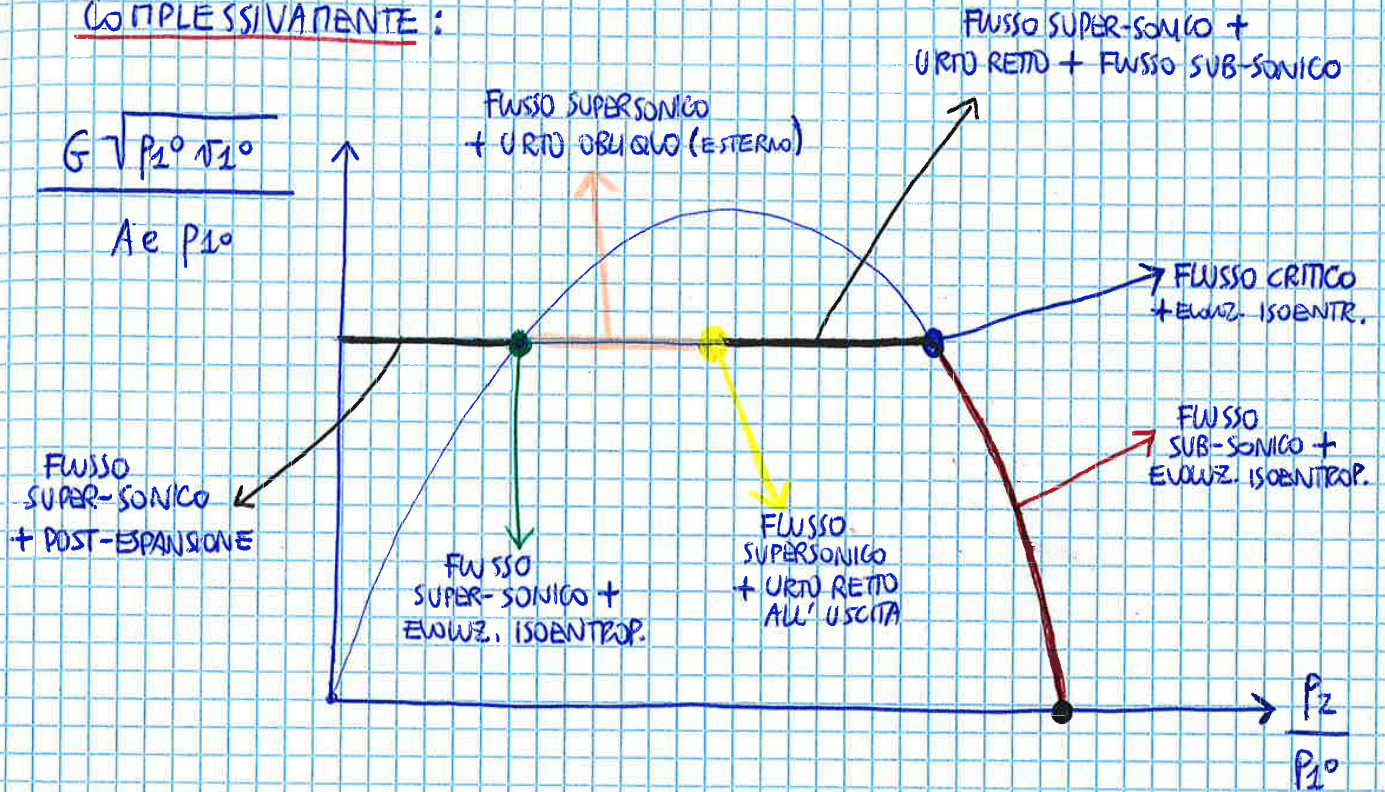 COMPLESSIVAMENTE :
FLUSSO SUPER-SONICO +
URTO RETTO + FLUSSO SUB-SONICO
FLUSSO SUPERSONICO
+ URTO OBLIQUO (ESTERNO)
G √p1° v1°
Ae p1°
FLUSSO CRITICO
+ EVOLUZ. ISOENTR.
FLUSSO
SUB-SONICO +
EVOLUZ. ISOENTROP.
FLUSSO
SUPER-SONICO
+ POST-ESPANSIONE
FLUSSO
SUPERSONICO
+ URTO RETTO
ALL' USCITA
FLUSSO
SUPER-SONICO +
EVOLUZ. ISOENTROP.
P2
P1°